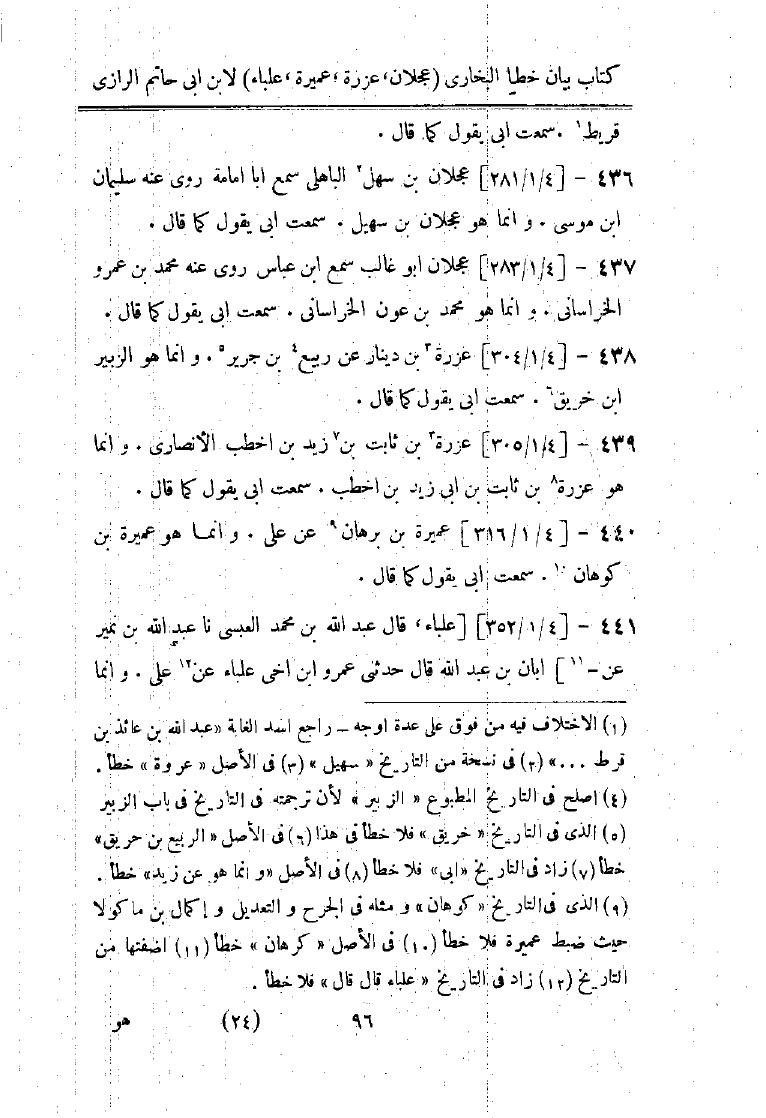 كتاب بيان خطأ البخارى (عجلان، عزرة، عميرة، علباء) لابن ابى حاتم الرازى
قريط١ . سمعت ابى يقول كما قال .
٤٣٦ – [٢٨١/١/٤] عجلان بن سهل٢ الباهلى سمع ابا امامة روى عنه سليمان
ابن موسى . و انما هو عجلان بن سهيل . سمعت ابى يقول كما قال .
٤٣٧ – [٢٨٣/١/٤] عجلان ابو غالب سمع ابن عباس روى عنه محمد بن عمرو
الخراسانى . و انما هو محمد بن عون الخراسانى . سمعت ابى يقول كما قال .
٤٣٨ – [٣٠٤/١/٤] عزرة٣ بن دينار عن ربيع٤ بن جرير٥ . و انما هو الزبير
ابن خريق٦ . سمعت ابى يقول كما قال .
٤٣٩ – [٣٠٥/١/٤] عزرة٣ بن ثابت بن٧ زيد بن اخطب الأنصارى . و انما
هو عزرة٨ بن ثابت بن ابى زيد بن اخطب . سمعت ابى يقول كما قال .
٤٤٠ – [٣١٦/١/٤] عميرة بن برهان٩ عن على . و انما هو عميرة بن
كوهان١٠ . سمعت ابى يقول كما قال .
٤٤١ – [٣٥٢/١/٤] [علباء، قال عبد الله بن محمد العبسى نا عبد الله بن نمير
عن – ١١] ابان بن عبد الله قال حدثنى عمرو ابن اخى علباء عن١٢ على . و انما
(١) الاختلاف فيه من فوق على عدة اوجه – راجع اسد الغابة «عبد الله بن عائذ بن
قرط ...» (٢) فى نسخة من التاريخ «سهيل» (٣) فى الأصل «عروة» خطأ .
(٤) اصلح فى التاريخ المطبوع «الزبير» لأن ترجمته فى التاريخ فى باب الزبير
(٥) الذى فى التاريخ «خريق» فلا خطأ فى هذا (٦) فى الأصل «الربيع بن حريق»
خطأ (٧) زاد فى التاريخ «ابى» فلا خطأ (٨) فى الأصل «و انما هو عن زيد» خطأ .
(٩) الذى فى التاريخ «كوهان» و مثله فى الجرح و التعديل و إكمال بن ماكولا
حيث ضبط عميرة فلا خطأ (١٠) فى الأصل «كرهان» خطأ (١١) اضفتها من
التاريخ (١٢) زاد فى التاريخ «علباء قال قال» فلا خطأ .
٩٦ (٢٤) هو